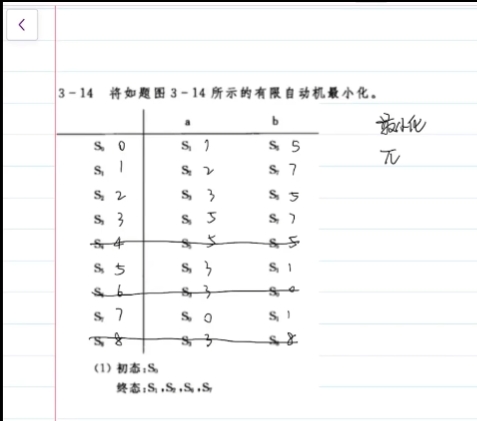 3-14 将如题图3-14所示的有限自动机最小化。
a b 最小化
S₀ 0 S₁ 1 S₅ 5 π
S₁ 1 S₂ 2 S₇ 7
S₂ 2 S₃ 3 S₅ 5
S₃ 3 S₅ 5 S₇ 7
S₄ 4 S₅ 5 S₅ 5
S₅ 5 S₃ 3 S₁ 1
S₆ 6 S₃ 3 S₀ 0
S₇ 7 S₀ 0 S₁ 1
S₈ 8 S₃ 3 S₈ 8
(1) 初态:S₀
终态:S₁,S₂,S₆,S₇